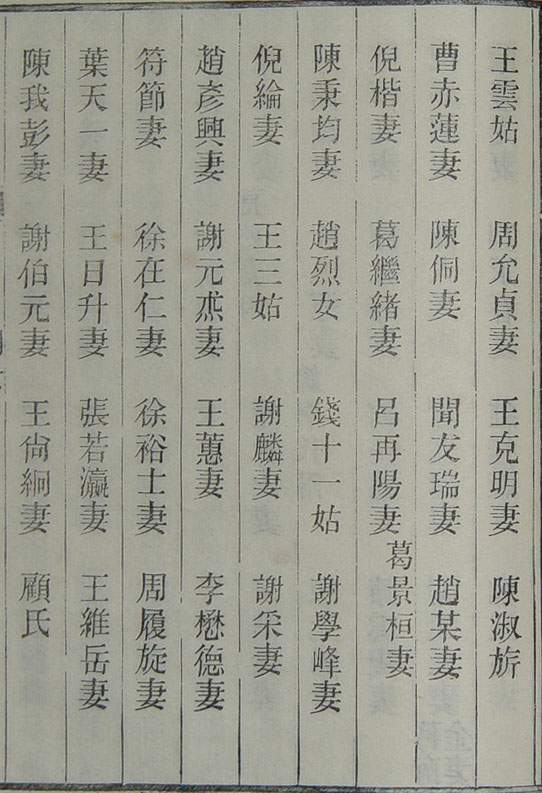 王雲姑 周允貞妻 王克明妻 陳淑旂
曹赤蓮妻 陳侗妻 聞友瑞妻 趙某妻
倪楷妻 葛繼緒妻 呂再陽妻 葛景桓妻
陳秉均妻 趙烈女 錢十一姑 謝學峰妻
倪綸妻 王三姑 謝麟妻 謝采妻
趙彥興妻 謝元焘妻 王蕙妻 李懋德妻
符節妻 徐在仁妻 徐裕士妻 周履旋妻
葉天一妻 王日升妻 張若瀛妻 王維岳妻
陳我彭妻 謝伯元妻 王尙絅妻 顧氏